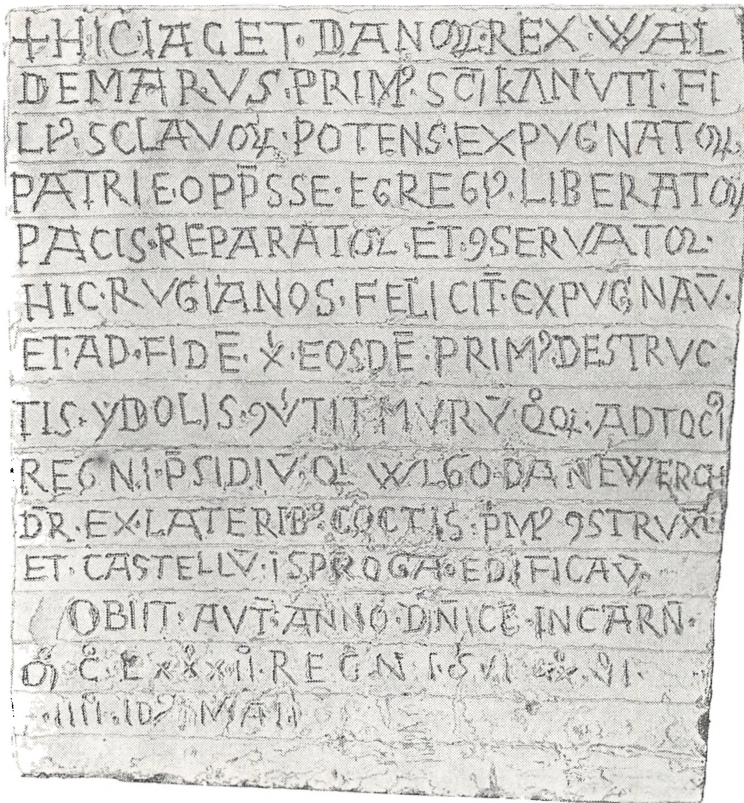 +HIC·IACET·DANOꝜ·REX·WAL
DEMARVS·PRIMꝰ·SC̄I KANVTI·FI
LIꝰ·SCLAVOꝜ·POTENS·EXPVGNATOR
PATRIE·OPP̄SSE·EGREGIꝰ·LIBERATOR
PACIS·REPARATOR·ET·ꝯSERVATOR·
HIC·RVGIANOS·FELICIT̄·EXPVGNAV̄·
ET·AD·FIDĒ·X̍·EOSDĒ·PRIMꝰ·DESTRVC
TIS·YDOLIS·ꝯVͥTIT MVRV̄·QͦꝜ·AD TOCꝰI
REGNI·P̄SIDIV̄·Q̍ WLGO·DANEWERCH
DR̄·EX·LATERIBꝰ·COCTIS·PͥMꝰ ꝯSTRVXͥ·
ET·CASTELLV̄·I SPROGA·EDIFICAV̄·
OBIIT·AVT̄·ANNO·DN̄ICE·INCARN̄·
Mͦ Cͦ·LXXXͦIIͦ·REGNI·SVI·XͦX·VI·
·IIII·IDꝰ·MAII